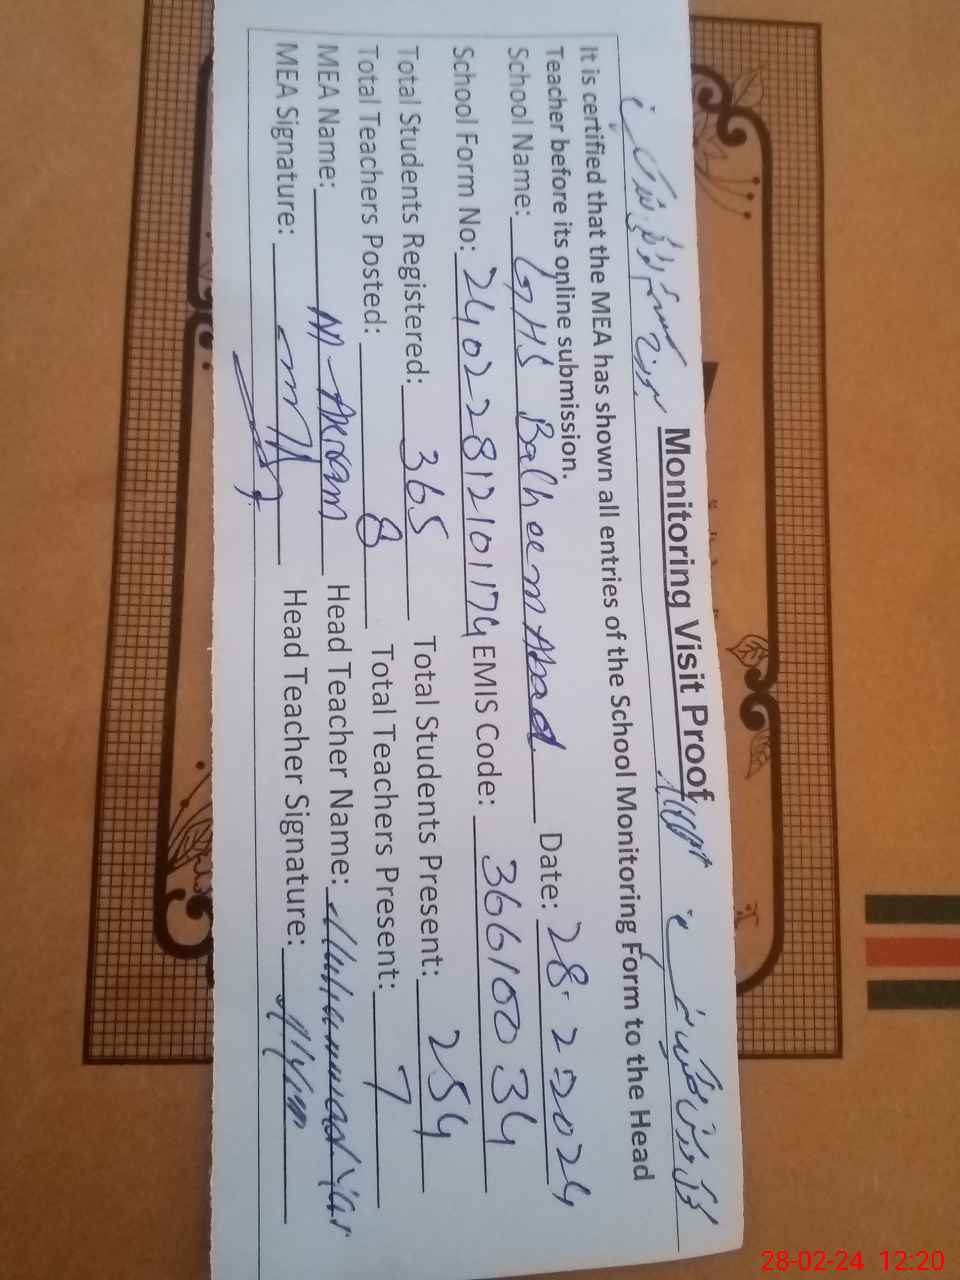 Monitoring Visit Proof
It is certified that the MEA has shown all entries of the School Monitoring Form to the Head
Teacher before its online submission.
School Name: GHS Baheem Abad Date: 28.2.2024
School Form No: 24022812101174 EMIS Code: 36610034
Total Students Registered: 365 Total Students Present: 254
Total Teachers Posted: 8 Total Teachers Present: 7
MEA Name: M-Akram Head Teacher Name: Muhammad Yar
MEA Signature: Head Teacher Signature:
28-02-24 12:20